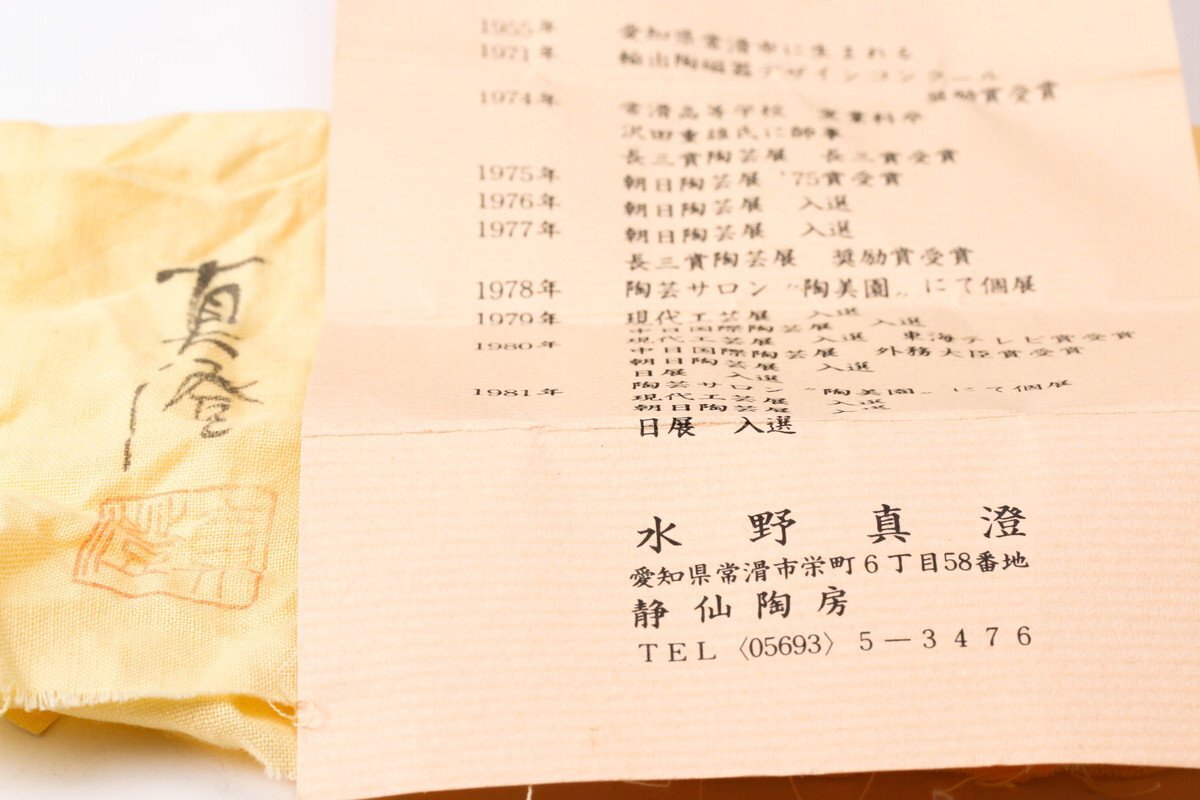 1955年 愛知県常滑市に生まれる
1971年 輸出陶磁器デザインコンクール
奨励賞受賞
1974年 常滑高等学校 窯業科卒
沢田重雄氏に師事
長三賞陶芸展 長三賞受賞
1975年 朝日陶芸展 '75賞受賞
1976年 朝日陶芸展 入選
1977年 朝日陶芸展 入選
長三賞陶芸展 奨励賞受賞
1978年 陶芸サロン〝陶美園〟にて個展
1979年 現代工芸展 入選
中日国際陶芸展 入選
1980年 現代工芸展 入選 東海テレビ賞受賞
中日国際陶芸展 外務大臣賞受賞
朝日陶芸展 入選
日展 入選
1981年 陶芸サロン〝陶美園〟にて個展
現代工芸展 入選
朝日陶芸展 入選
日展 入選
水野真澄
愛知県常滑市栄町6丁目58番地
静仙陶房
TEL〈05693〉5―3476
真澄